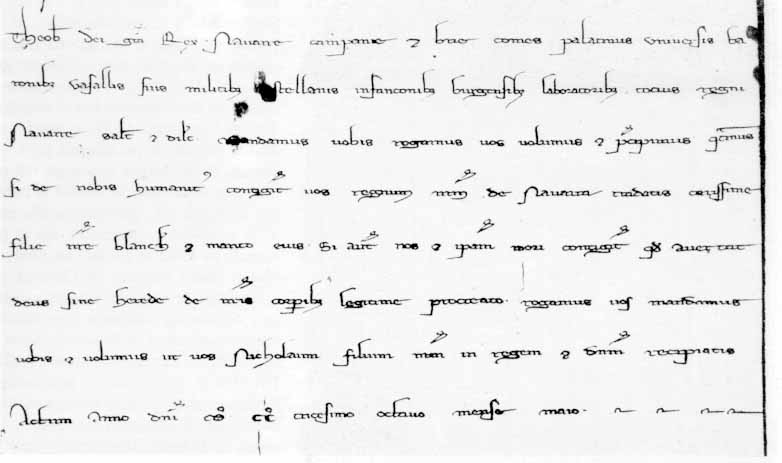 Theob dei gra Rex Navarre campanie ⁊ brie comes palatinus universis ba
ronib vasallis suis militib castellanis infanconib burgensib laboratorib totius regni
Navarre salt ⁊ dilc mandamus vobis rogamus vos volumus ⁊ p̃cipimus q̃tinus
si de nobis humanit contigit vos regnum nrm de Navarra tradatis carissime
filie nre blanch ⁊ marito eius. Si aute nos ⁊ ipam mori contigit qd avertat
deus sine herede de nris corporib legitime procreato. rogamus vos mandamus
vobis ⁊ volumus ut vos Nicholaum filium meu in regem ⁊ dnm recipiatis
Actum Anno dni mo cco tricesimo octavo mense maio.